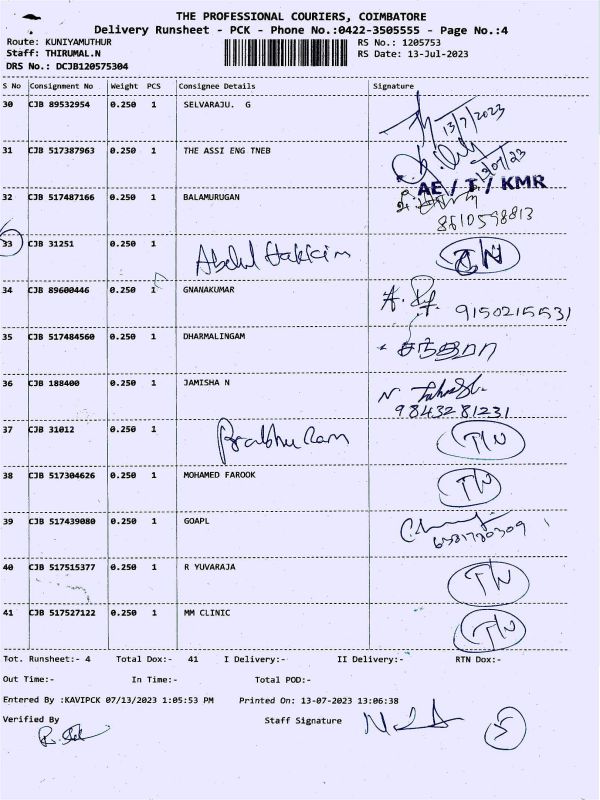 THE PROFESSIONAL COURIERS, COIMBATORE
Delivery Runsheet - PCK - Phone No.:0422-3505555 - Page No.:4
Route: KUNIYAMUTHUR RS No.: 1205753
Staff: THIRUMAL.N RS Date: 13-Jul-2023
DRS No.: DCJB120575304
S No Consignment No Weight PCS Consignee Details Signature
30 CJB 89532954 0.250 1 SELVARAJU. G 13/7/2023
31 CJB 517387963 0.250 1 THE ASSI ENG TNEB
AE / T / KMR
32 CJB 517487166 0.250 1 BALAMURUGAN
8610598813
33 CJB 31251 0.250 1 Abdul Hakkim
34 CJB 89600446 0.250 1 GNANAKUMAR 9150215531
35 CJB 517484560 0.250 1 DHARMALINGAM
36 CJB 188400 0.250 1 JAMISHA N
9843281231
37 CJB 31012 0.250 1 Prabhu Ram T/N
38 CJB 517304626 0.250 1 MOHAMED FAROOK T/N
39 CJB 517439080 0.250 1 GOAPL
40 CJB 517515377 0.250 1 R YUVARAJA T/N
41 CJB 517527122 0.250 1 MM CLINIC T/N
Tot. Runsheet:- 4 Total Dox:- 41 I Delivery:- II Delivery:- RTN Dox:-
Out Time:- In Time:- Total POD:-
Entered By :KAVIPCK 07/13/2023 1:05:53 PM Printed On: 13-07-2023 13:06:38
Verified By Staff Signature 5